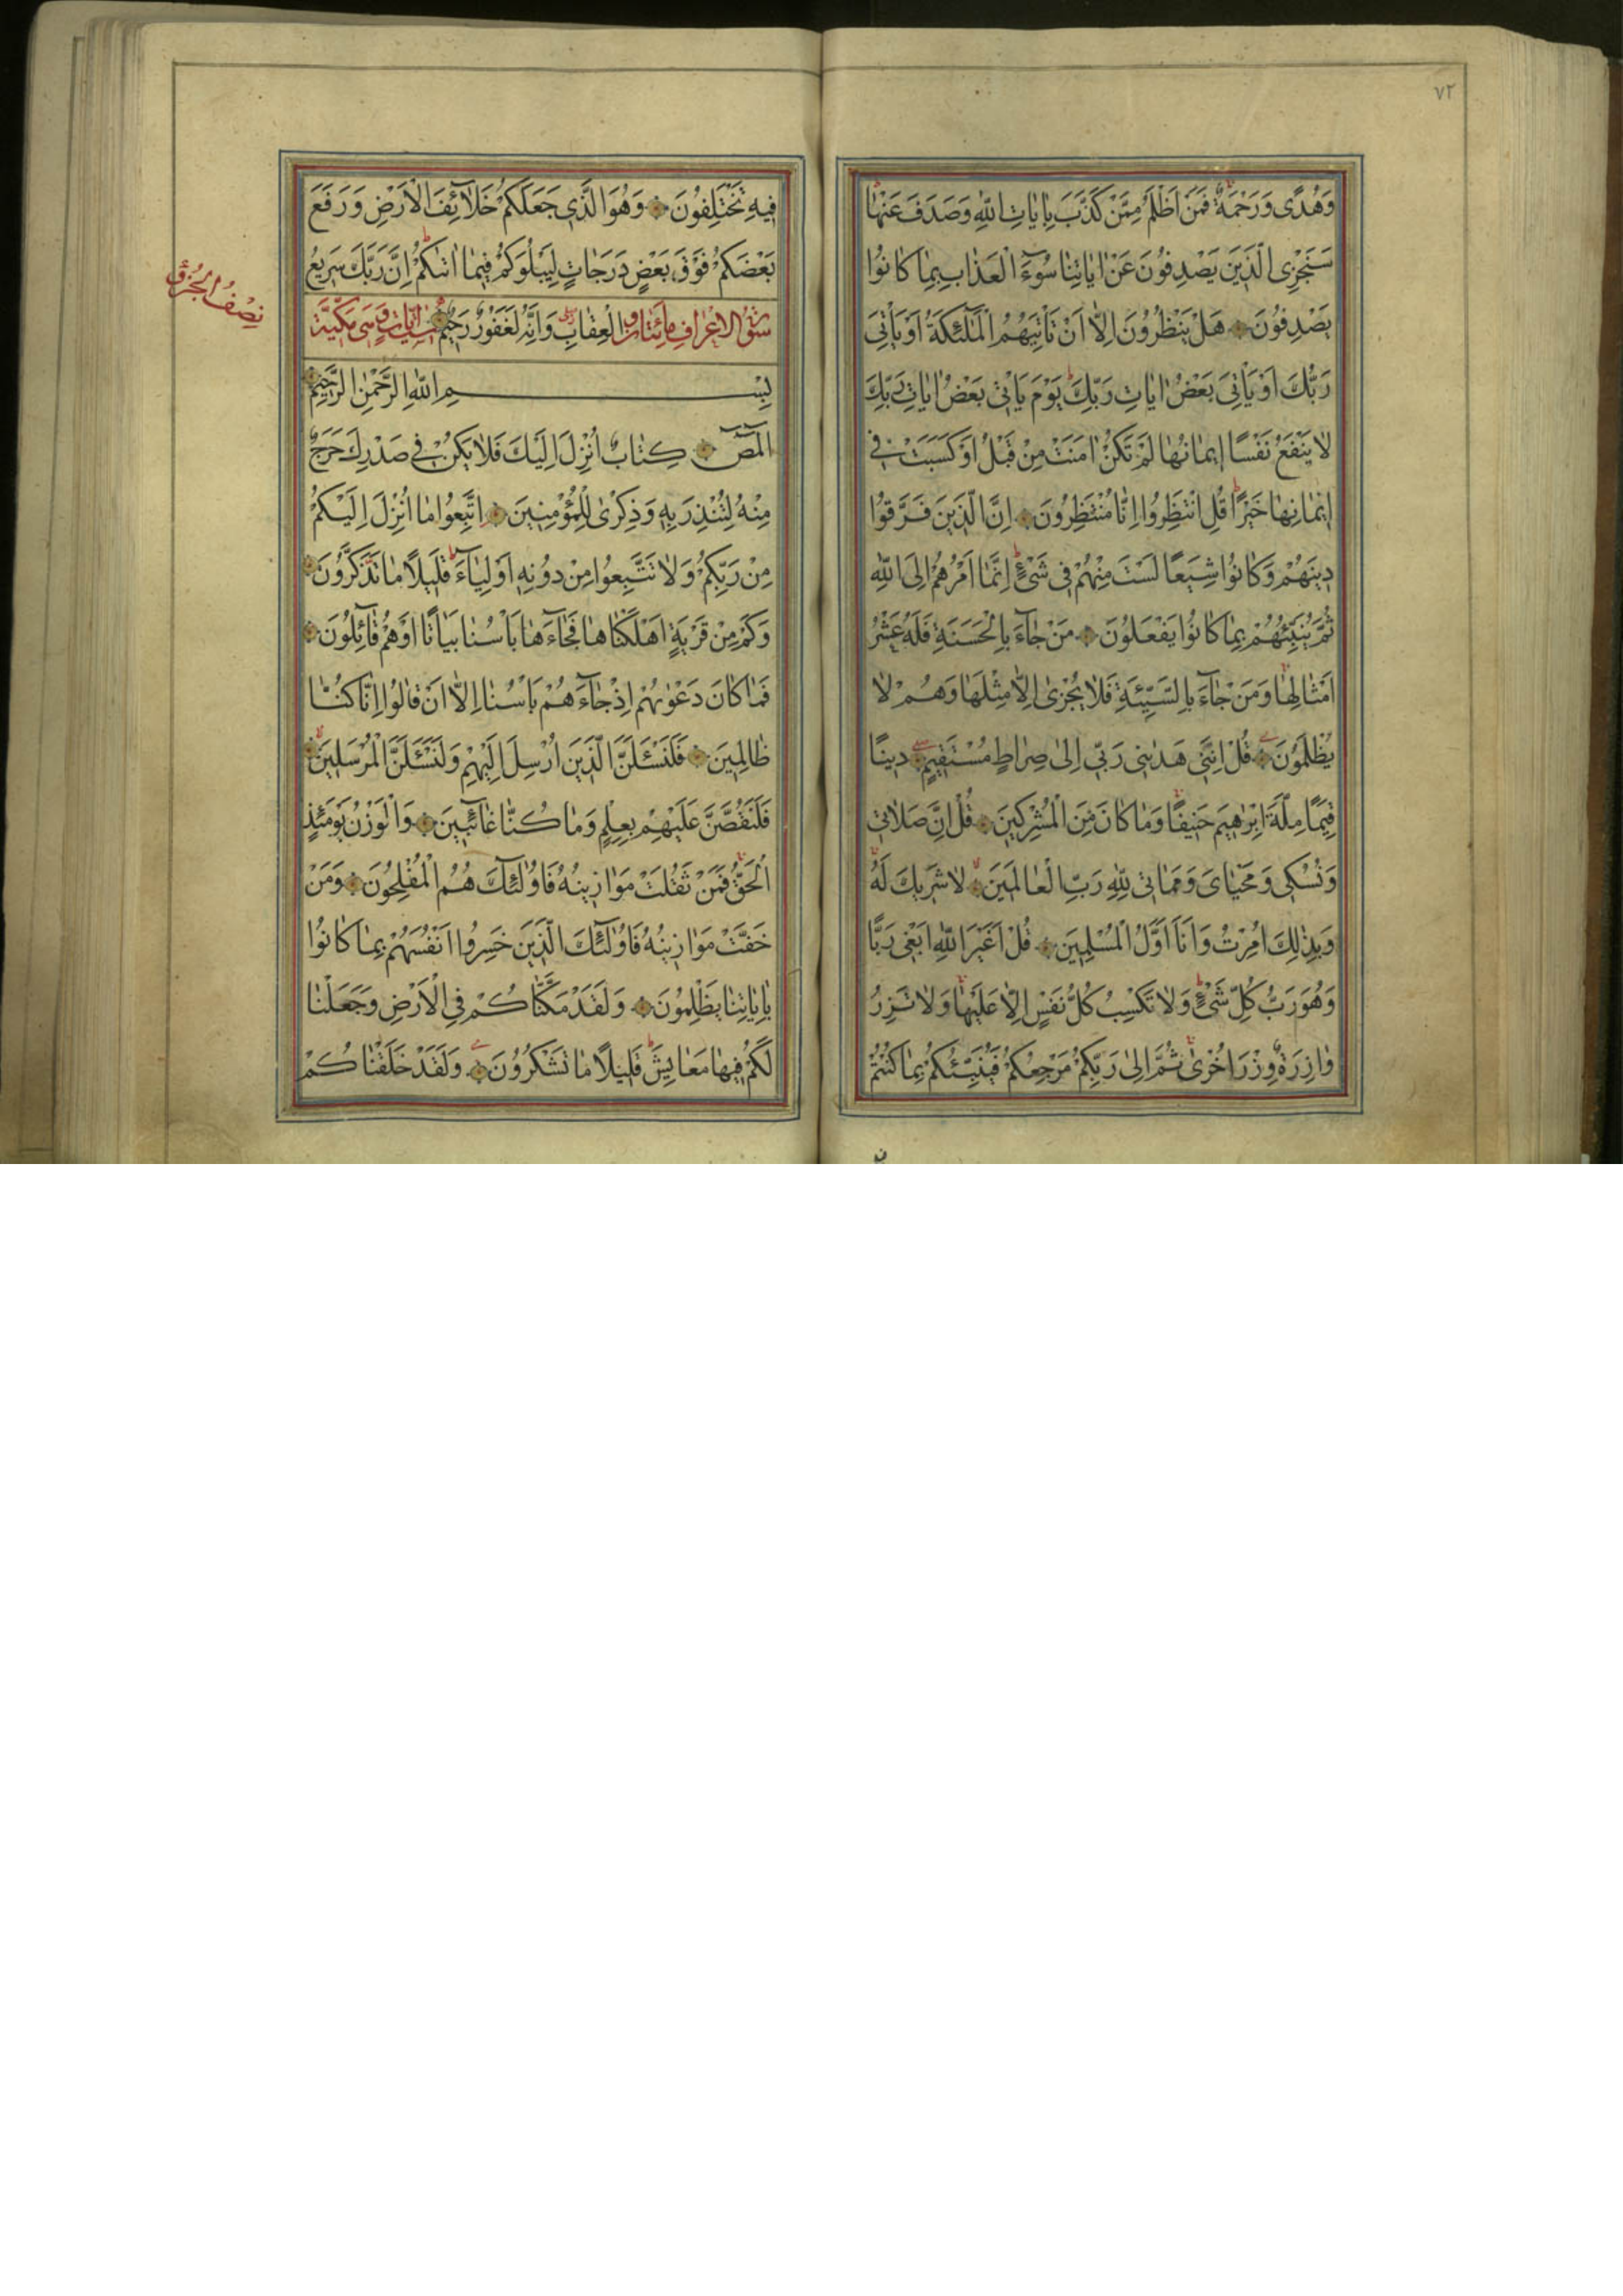 ٧٢
وَهُدًى وَرَحْمَةٌ فَمَنْ اَظْلَمُ مِمَّنْ كَذَّبَ بِاٰيٰاتِ اللّٰهِ وَصَدَفَ عَنْهٰا
سَنَجْزِى الَّذِينَ يَصْدِفُونَ عَنْ اٰيٰاتِنٰا سُوۤءَ الْعَذٰابِ بِمٰا كٰانُوا
يَصْدِفُونَ هَلْ يَنْظُرُونَ اِلاّٰ اَنْ تَأْتِيَهُمُ الْمَلٰئِكَةُ اَوْ يَأْتِىَ
رَبُّكَ اَوْ يَأْتِىَ بَعْضُ اٰيٰاتِ رَبِّكَ يَوْمَ يَأْتِى بَعْضُ اٰيٰاتِ رَبِّكَ
لاٰ يَنْفَعُ نَفْسًا اِيمٰانُهٰا لَمْ تَكُنْ اٰمَنَتْ مِنْ قَبْلُ اَوْ كَسَبَتْ فِى
اِيمٰانِهٰا خَيْرًا قُلِ انْتَظِرُوا اِنّٰا مُنْتَظِرُونَ اِنَّ الَّذِينَ فَرَّقُوا
دِينَهُمْ وَكٰانُوا شِيَعًا لَسْتَ مِنْهُمْ فِى شَىْءٍ اِنَّمٰا اَمْرُهُمْ اِلَى اللّٰهِ
ثُمَّ يُنَبِّئُهُمْ بِمٰا كٰانُوا يَفْعَلُونَ مَنْ جٰاۤءَ بِالْحَسَنَةِ فَلَهُ عَشْرُ
اَمْثٰالِهٰا وَمَنْ جٰاۤءَ بِالسَّيِّئَةِ فَلاٰ يُجْزٰى اِلاّٰ مِثْلَهٰا وَهُمْ لاٰ
يُظْلَمُونَ قُلْ اِنَّنِى هَدٰينِى رَبِّى اِلىٰ صِرٰاطٍ مُسْتَقِيمٍ دِينًا
قِيَمًا مِلَّةَ اِبْرٰهِيمَ حَنِيفًا وَمٰا كٰانَ مِنَ الْمُشْرِكِينَ قُلْ اِنَّ صَلاٰتِى
وَنُسُكِى وَمَحْيٰاىَ وَمَمٰاتِى لِلّٰهِ رَبِّ الْعٰالَمِينَ لاٰ شَرِيكَ لَهُ
وَبِذٰلِكَ اُمِرْتُ وَاَنَا اَوَّلُ الْمُسْلِمِينَ قُلْ اَغَيْرَ اللّٰهِ اَبْغِى رَبًّا
وَهُوَ رَبُّ كُلِّ شَىْءٍ وَلاٰ تَكْسِبُ كُلُّ نَفْسٍ اِلاّٰ عَلَيْهٰا وَلاٰ تَزِرُ
وٰازِرَةٌ وِزْرَ اُخْرٰى ثُمَّ اِلىٰ رَبِّكُمْ مَرْجِعُكُمْ فَيُنَبِّئُكُمْ بِمٰا كُنْتُمْ
فِيهِ تَخْتَلِفُونَ وَهُوَ الَّذِى جَعَلَكُمْ خَلاٰۤئِفَ الْاَرْضِ وَرَفَعَ
بَعْضَكُمْ فَوْقَ بَعْضٍ دَرَجٰاتٍ لِيَبْلُوَكُمْ فِيمٰا اٰتٰيكُمْ اِنَّ رَبَّكَ سَرِيعُ
سورة الاعراف مائتان و الْعِقٰابِ وَاِنَّهُ لَغَفُورٌ رَحِيمٌ ايات وهى مكيّة
بِسْمِ اللّٰهِ الرَّحْمٰنِ الرَّحِيمِ
الۤمۤصۤ كِتٰابٌ اُنْزِلَ اِلَيْكَ فَلاٰ يَكُنْ فِى صَدْرِكَ حَرَجٌ
مِنْهُ لِتُنْذِرَ بِهِ وَذِكْرٰى لِلْمُؤْمِنِينَ اِتَّبِعُوا مٰا اُنْزِلَ اِلَيْكُمْ
مِنْ رَبِّكُمْ وَلاٰ تَتَّبِعُوا مِنْ دُونِهِ اَوْلِيٰاۤءَ قَلِيلاً مٰا تَذَكَّرُونَ
وَكَمْ مِنْ قَرْيَةٍ اَهْلَكْنٰاهٰا فَجٰاۤءَهٰا بَأْسُنٰا بَيٰاتًا اَوْ هُمْ قٰاۤئِلُونَ
فَمٰا كٰانَ دَعْوٰيهُمْ اِذْ جٰاۤءَهُمْ بَأْسُنٰا اِلاّٰ اَنْ قٰالُوا اِنّٰا كُنّٰا
ظٰالِمِينَ فَلَنَسْئَلَنَّ الَّذِينَ اُرْسِلَ اِلَيْهِمْ وَلَنَسْئَلَنَّ الْمُرْسَلِينَ
فَلَنَقُصَّنَّ عَلَيْهِمْ بِعِلْمٍ وَمٰا كُنّٰا غٰاۤئِبِينَ وَالْوَزْنُ يَوْمَئِذٍ
الْحَقُّ فَمَنْ ثَقُلَتْ مَوٰازِينُهُ فَاُولٰۤئِكَ هُمُ الْمُفْلِحُونَ وَمَنْ
خَفَّتْ مَوٰازِينُهُ فَاُولٰۤئِكَ الَّذِينَ خَسِرُوا اَنْفُسَهُمْ بِمٰا كٰانُوا
بِاٰيٰاتِنٰا يَظْلِمُونَ وَلَقَدْ مَكَّنّٰاكُمْ فِى الْاَرْضِ وَجَعَلْنٰا
لَكُمْ فِيهٰا مَعٰايِشَ قَلِيلاً مٰا تَشْكُرُونَ وَلَقَدْ خَلَقْنٰاكُمْ
نصف الجزؤ